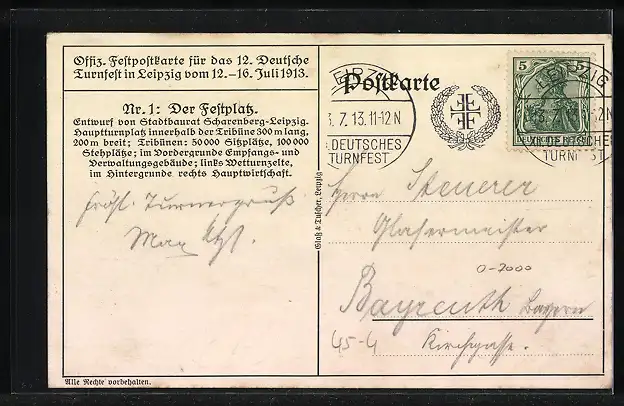 Offiz. Festpostkarte für das 12. Deutsche
Turnfest in Leipzig vom 12.–16. Juli 1913.
Nr. 1: Der Festplatz.
Entwurf von Stadtbaurat Scharenberg-Leipzig.
Hauptturnplatz innerhalb der Tribüne 300 m lang,
200 m breit; Tribünen: 50 000 Sitzplätze, 100 000
Stehplätze; im Vordergrunde Empfangs- und
Verwaltungsgebäude; links Wetturnzelte,
im Hintergrunde rechts Hauptwirtschaft.
Turnergruß
Max
Alle Rechte vorbehalten.
Glaß & Tuscher, Leipzig
Postkarte
LEIPZIG
3. 7. 13. 11-12 N
DEUTSCHES
TURNFEST
5
LEIPZIG
DEUTSCHES
TURNFEST
Herrn Steuerer
Glasermeister
0-2000
Bayreuth Bayern
45-4
Kirchgasse.